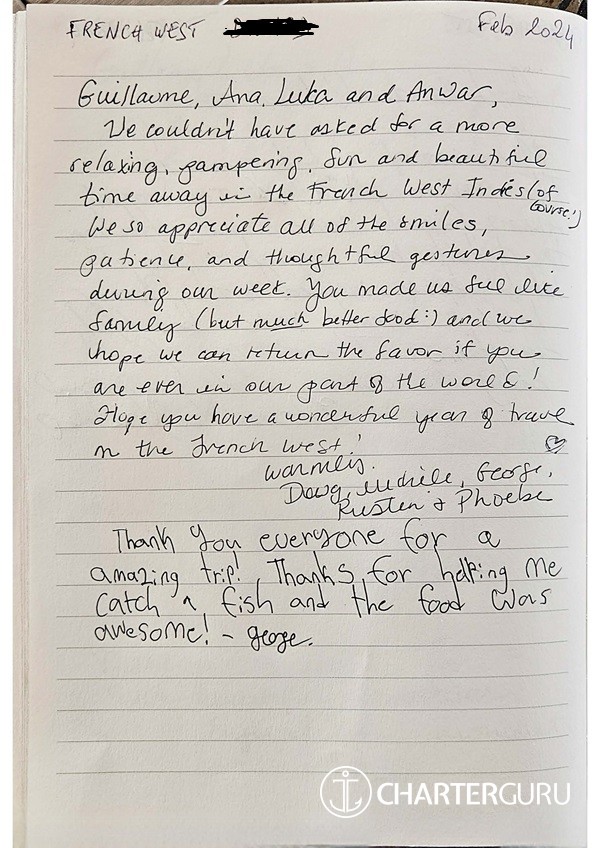 FRENCH WEST
Feb 2024
Guillaume, Ana, Luka and Anwar,
We couldn't have asked for a more
relaxing, pampering, fun and beautiful
time away in the French West Indes (of
course!)
We so appreciate all of the smiles,
patience, and thoughtful gestures
during our week. You made us feel like
family (but much better food :) and we
hope we can return the favor if you
are ever in our part of the world!
Hope you have a wonderful year of travel
in the French West! ♡
Warmly,
Doug, Michele, George,
Kristen & Phoebe
Thank you everyone for a
amazing trip! Thanks for helping me
catch a fish and the food was
awesome! - george.
CHARTERGURU